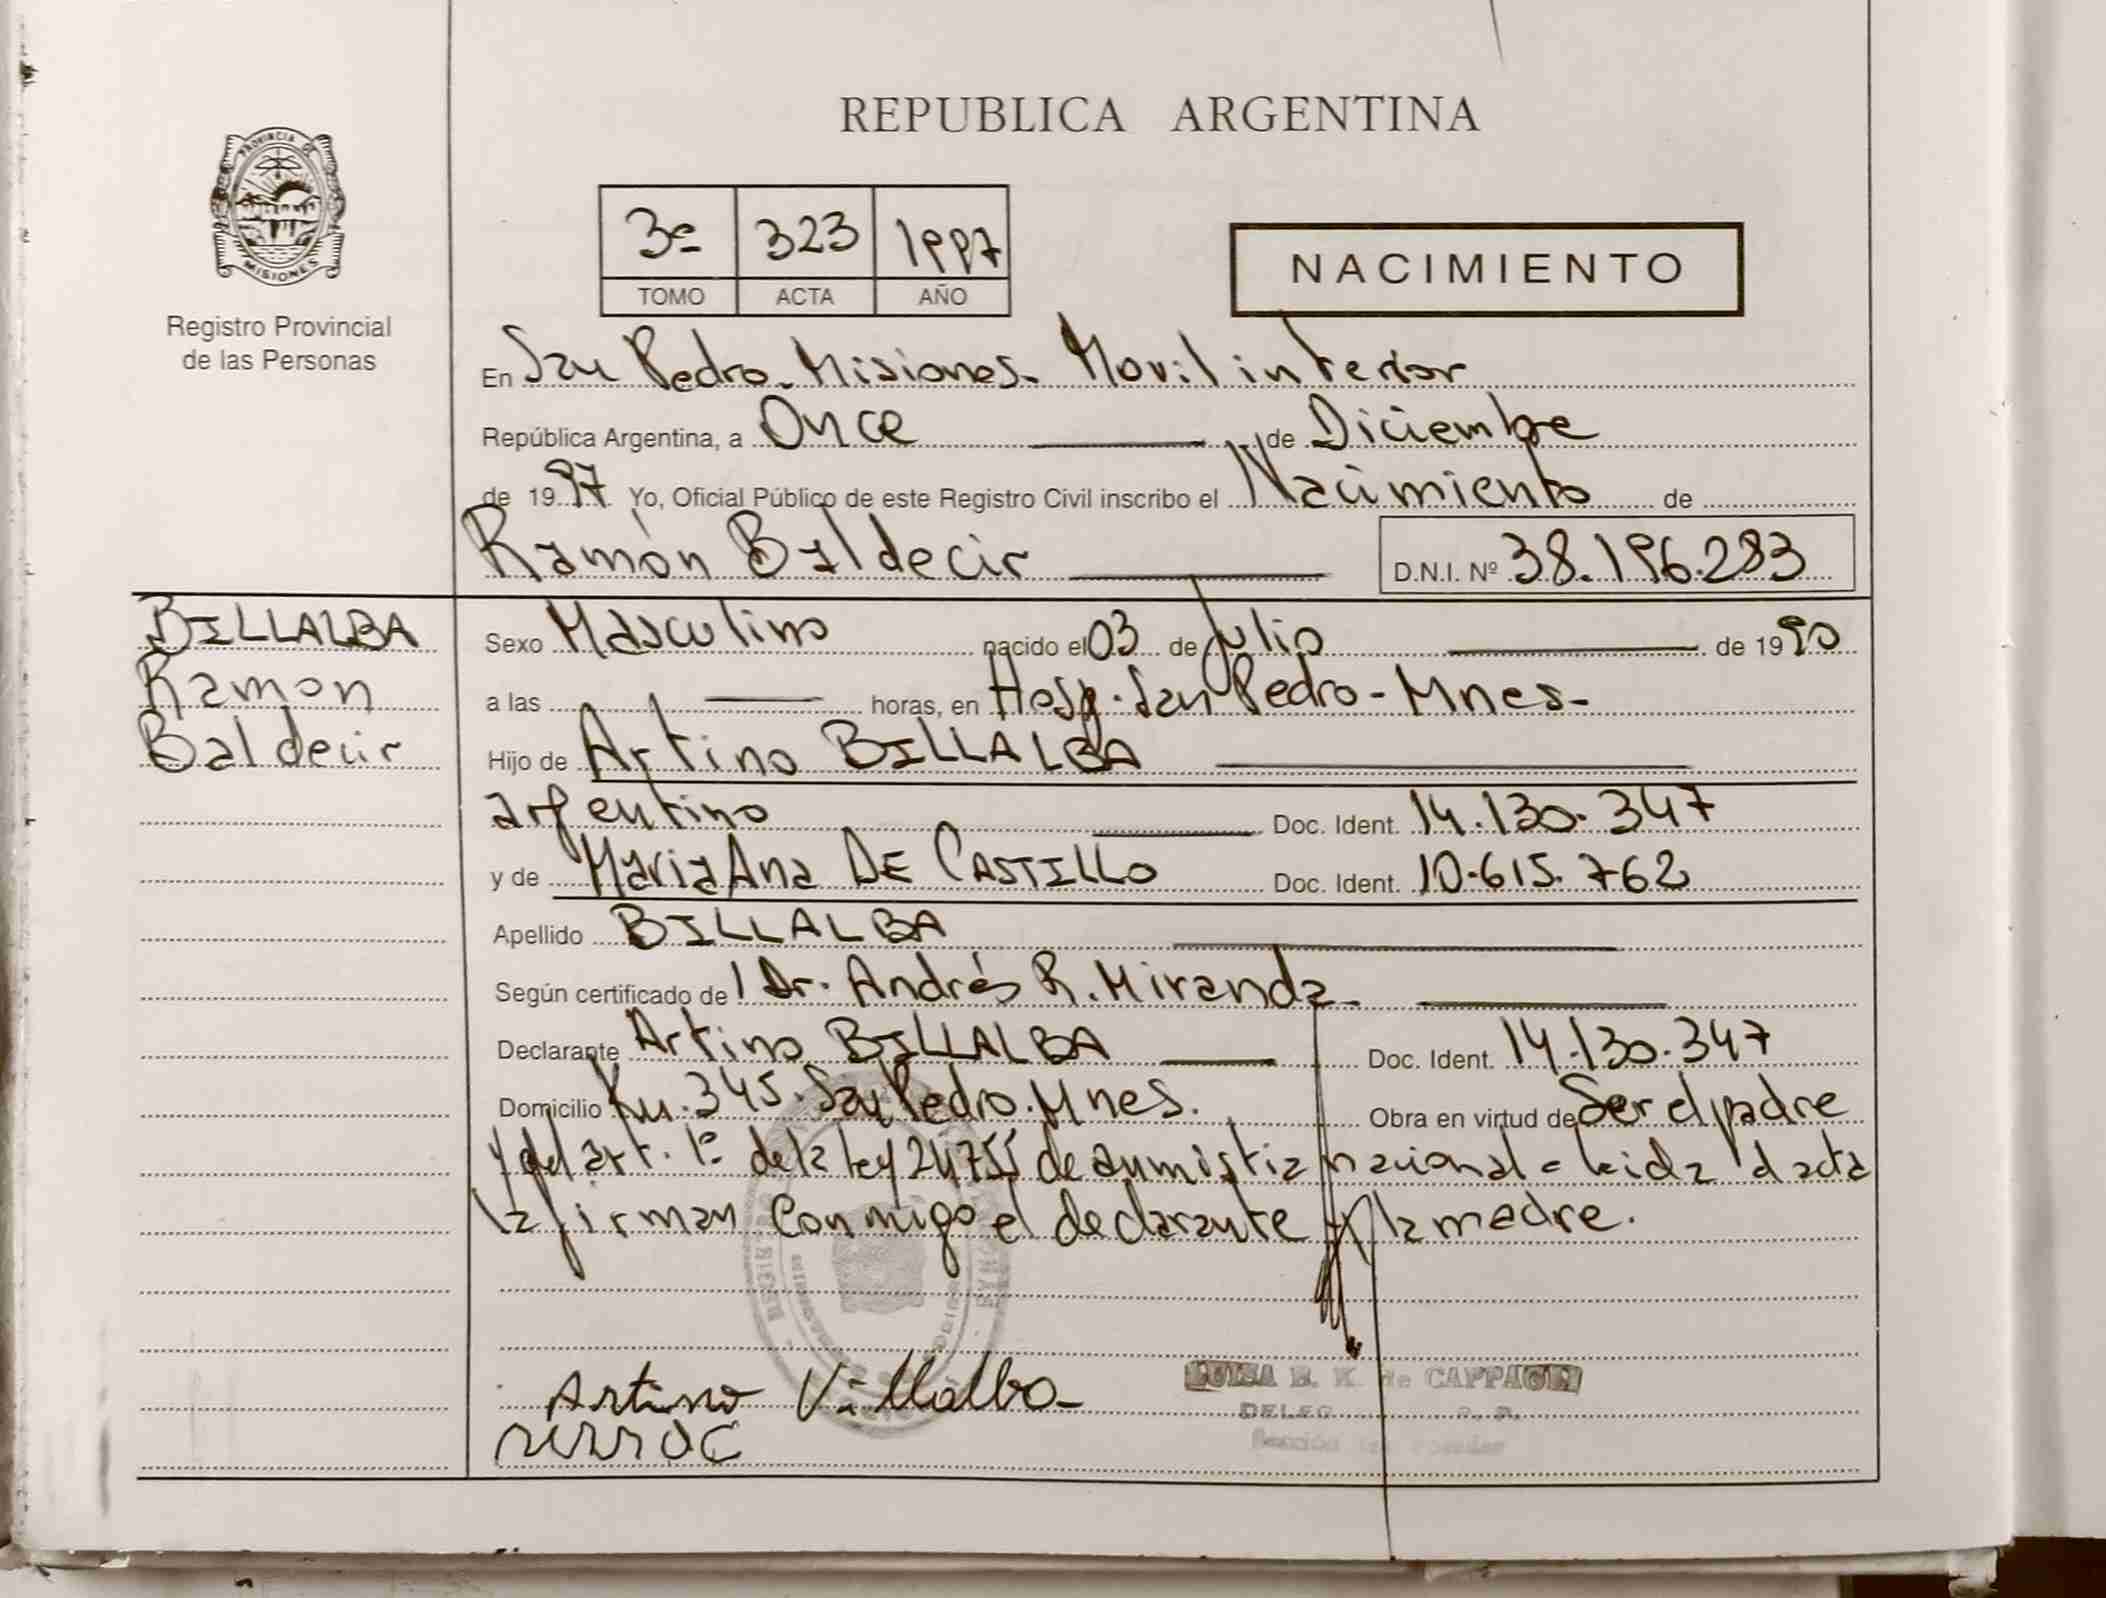 REPUBLICA ARGENTINA
PROVINCIA DE
MISIONES
Registro Provincial
de las Personas
3º 323 1997
TOMO ACTA AÑO
NACIMIENTO
En San Pedro-Misiones. Movil interior
República Argentina, a Once de Diciembre
de 1997 Yo, Oficial Público de este Registro Civil inscribo el Nacimiento de
Ramón Baldecir D.N.I. Nº 38.196.283
BILLALBA
Ramon
Baldecir
Sexo Masculino nacido el 03 de Julio de 1990
a las horas, en Hosp. San Pedro-Mnes-
Hijo de Artino BILLALBA
argentino Doc. Ident. 14.130.347
y de Maria Ana DE CASTILLO Doc. Ident. 10.615.762
Apellido BILLALBA
Según certificado de Dr. Andrés R. Miranda.
Declarante Artino BILLALBA Doc. Ident. 14.130.347
Domicilio Km. 345. San Pedro. Mnes. Obra en virtud de Ser el padre
y del art. 1º de la ley 24755 de aumistia nacional= leida el acta
la firman conmigo el declarante y la madre.
Artino Villalba
LUISA E. K. de CAPPA
DELEG